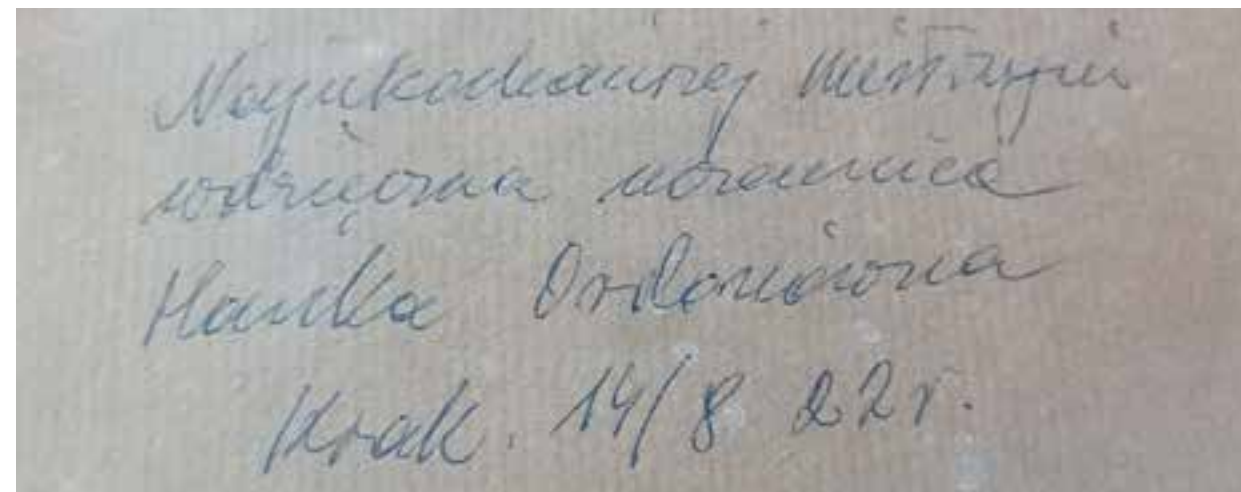 Najukochańszej mistrzyni
wdzięczna uczennica
Hanka Ordonówna
Krak. 14/8 22 r.